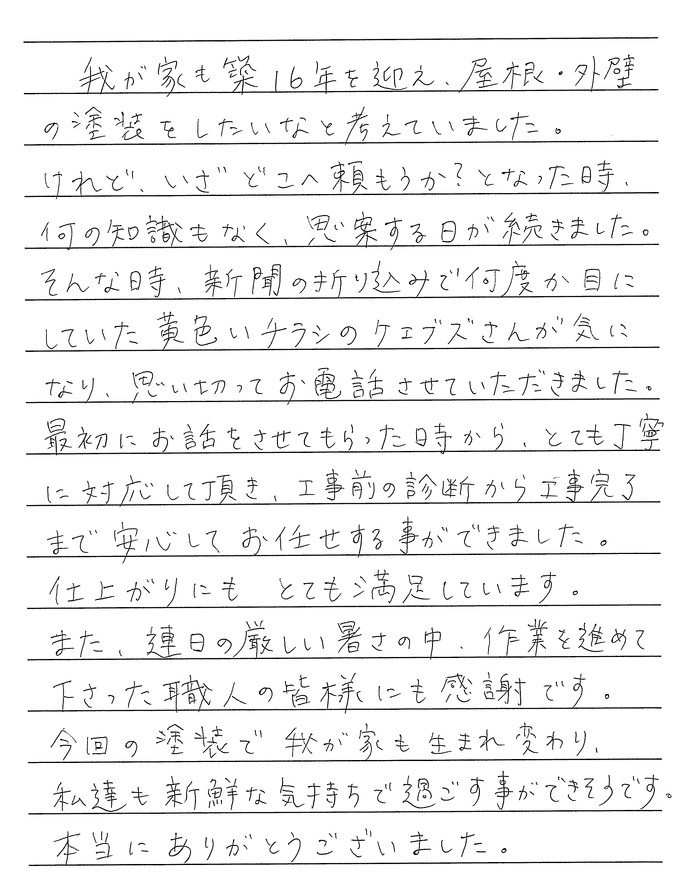 我が家も築16年を迎え、屋根・外壁
の塗装をしたいなと考えていました。
けれど、いざどこへ頼もうか?となった時、
何の知識もなく、思案する日が続きました。
そんな時、新聞の折り込みで何度か目に
していた黄色いチラシのケェブズさんが気に
なり、思い切ってお電話させていただきました。
最初にお話をさせてもらった時から、とても丁寧
に対応して頂き、工事前の診断から工事完了
まで安心してお任せする事ができました。
仕上がりにも とても満足しています。
また、連日の厳しい暑さの中、作業を進めて
下さった職人の皆様にも感謝です。
今回の塗装で我が家も生まれ変わり、
私達も新鮮な気持ちで過ごす事ができそうです。
本当にありがとうございました。